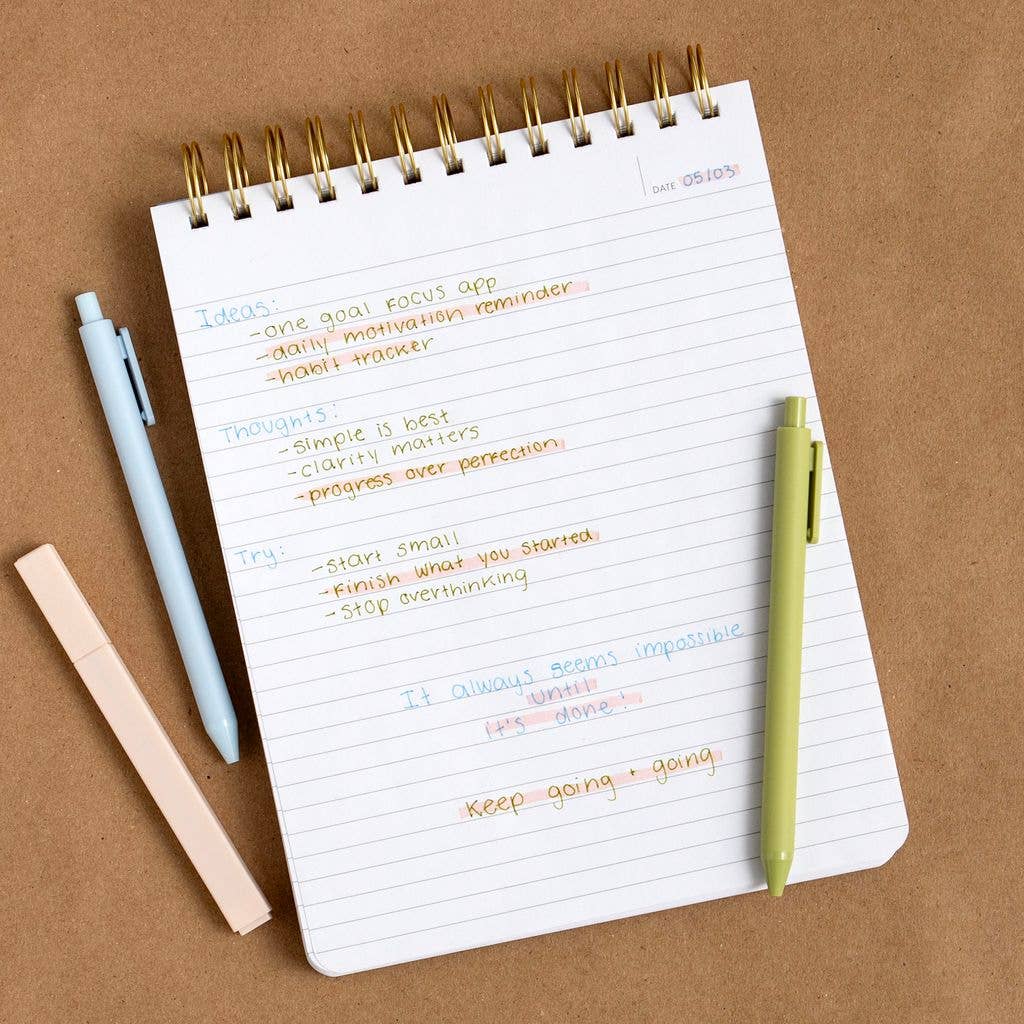 DATE 05/03
Ideas:
-one goal focus app
-daily motivation reminder
-habit tracker
Thoughts:
-simple is best
-clarity matters
-progress over perfection
Try:
-start small
-Finish what you started
-stop overthinking
It always seems impossible
until
it's done!
Keep going + going